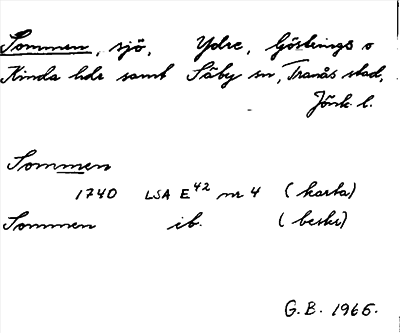 Sommen, sjö, Ydre, Göstrings o
Kinda hdr samt Säby sn, Tranås stad,
Jönk. l.
Sommen
1740 LSA E42 nr 4 (karta)
Sommen ib. (beskr)
G.B. 1965.